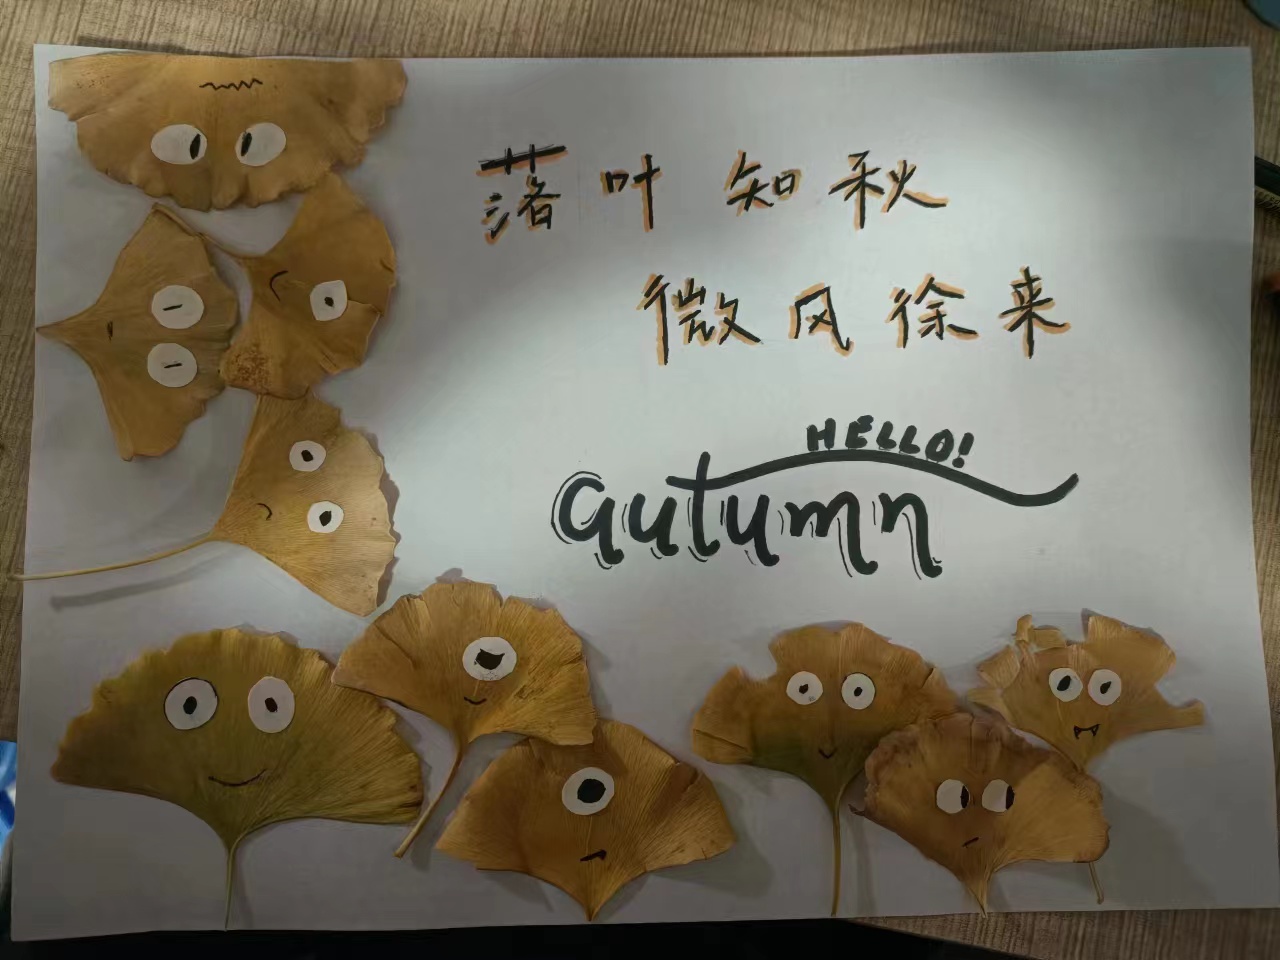 落叶知秋
微风徐来
HELLO!
autumn